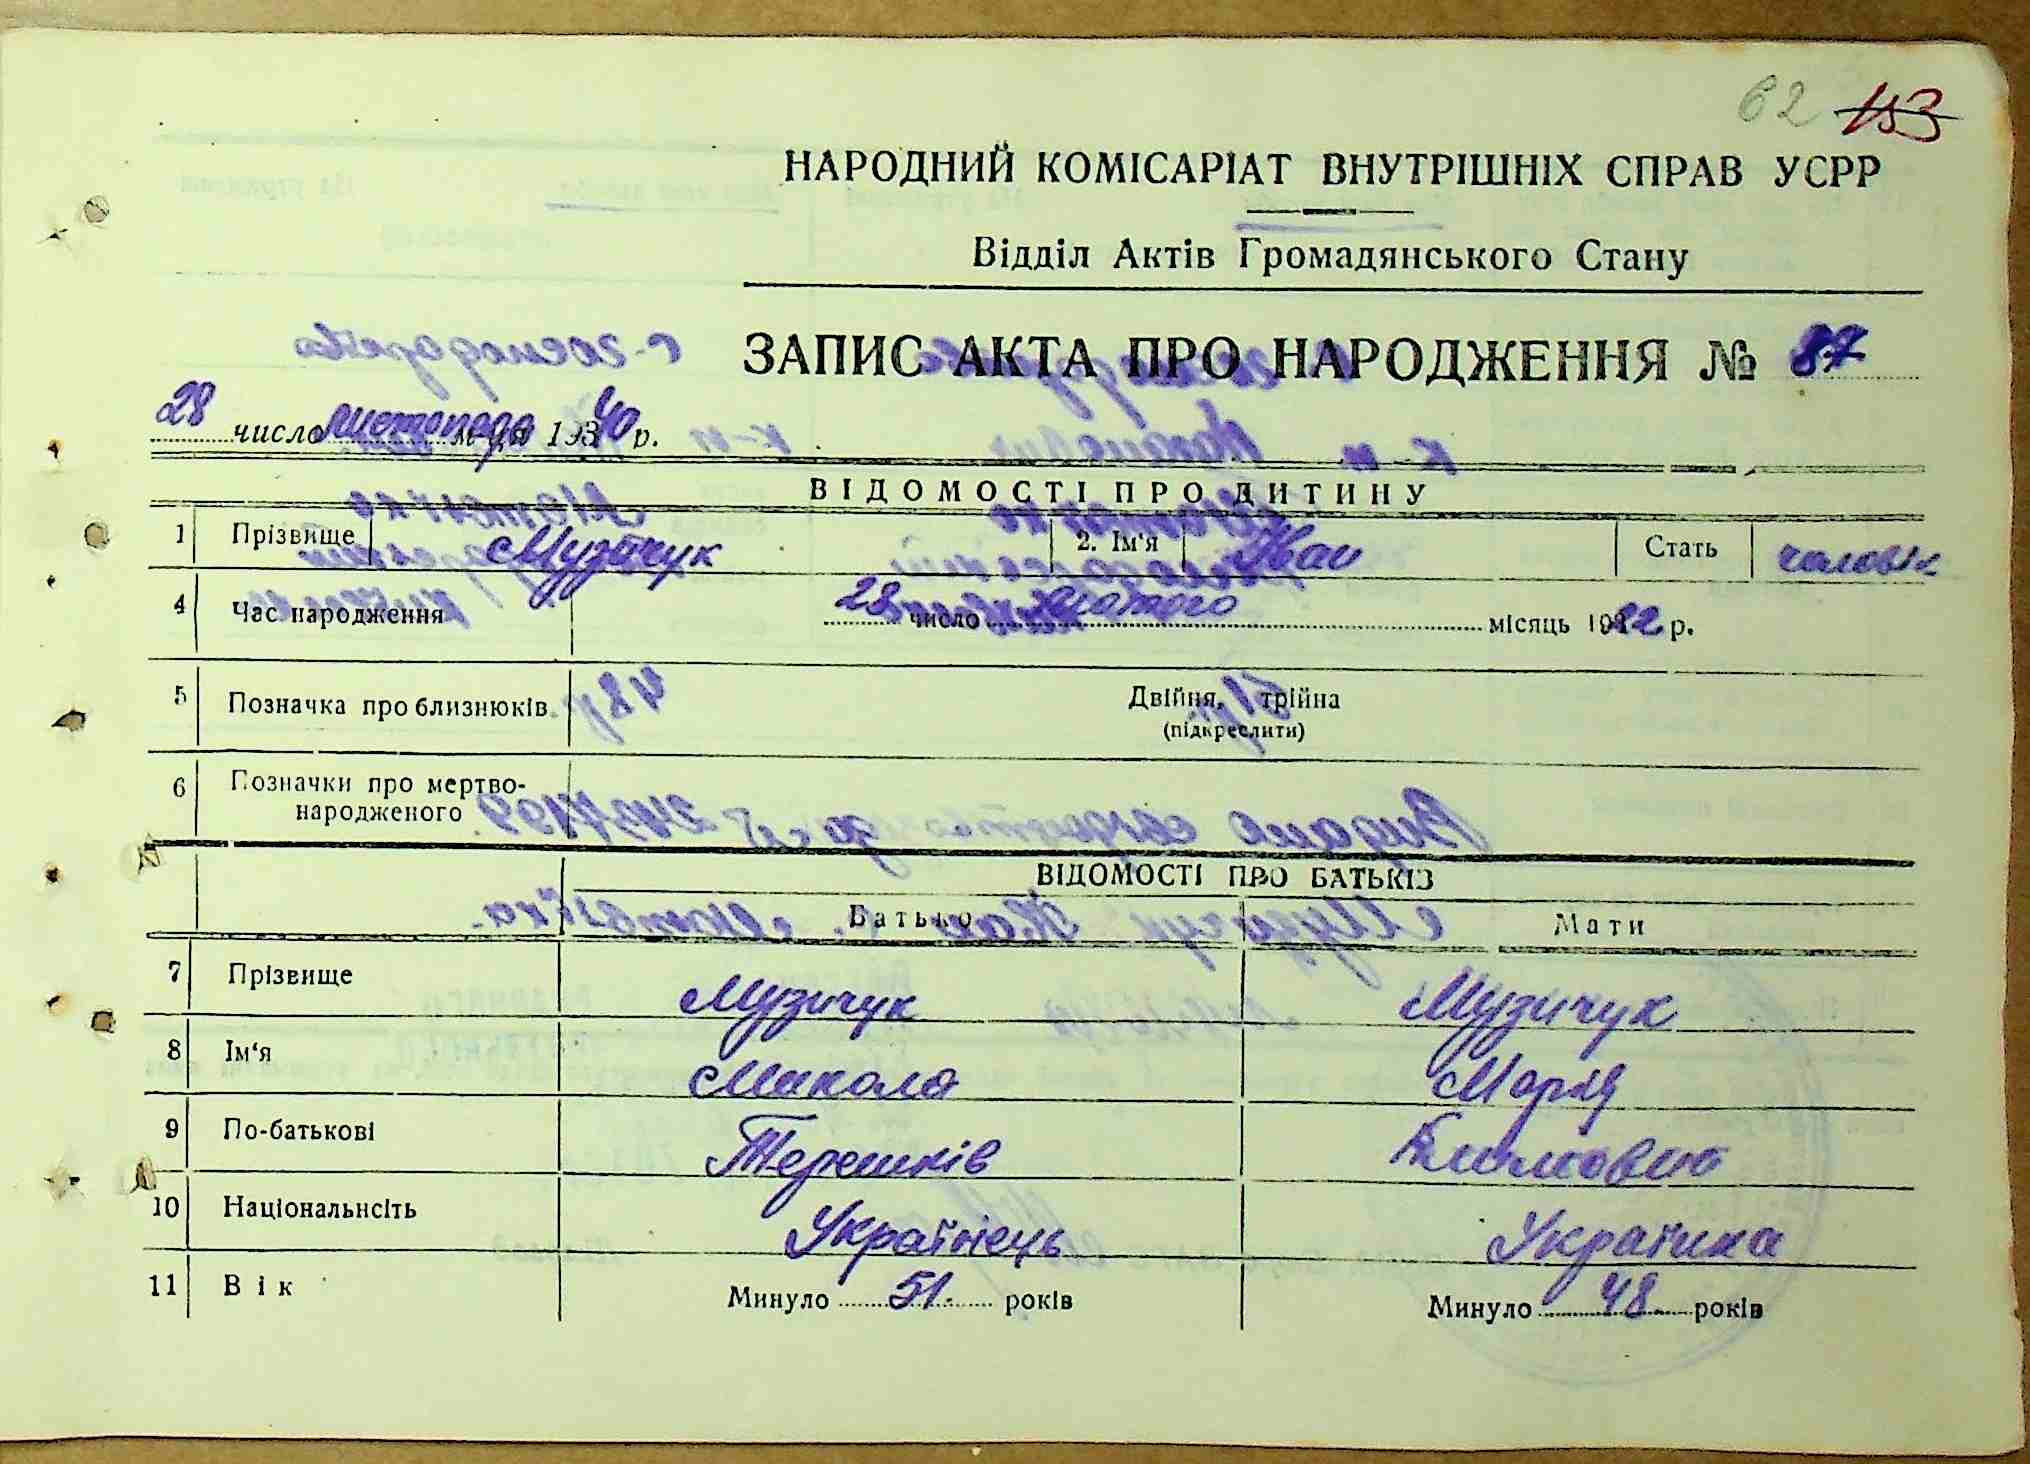 62 153
НАРОДНИЙ КОМІСАРІАТ ВНУТРІШНІХ СПРАВ УСРР
Відділ Актів Громадянського Стану
ЗАПИС АКТА ПРО НАРОДЖЕННЯ № 87
28 число листопада м-ця 1940 р.
ВІДОМОСТІ ПРО ДИТИНУ
1 Прізвище Музичук 2. Ім'я Іван Стать чоловік
4 Час народження 28 число лютого місяць 1922 р.
5 Позначка про близнюків Двійня, трійна
(підкреслити)
6 Позначки про мертво-
народженого
ВІДОМОСТІ ПРО БАТЬКІВ
Батько Мати
7 Прізвище Музичук Музичук
8 Ім'я Микола Марія
9 По-батькові Терешків
10 Національнсіть Українець Українка
11 Вік Минуло 51 років Минуло 48 років